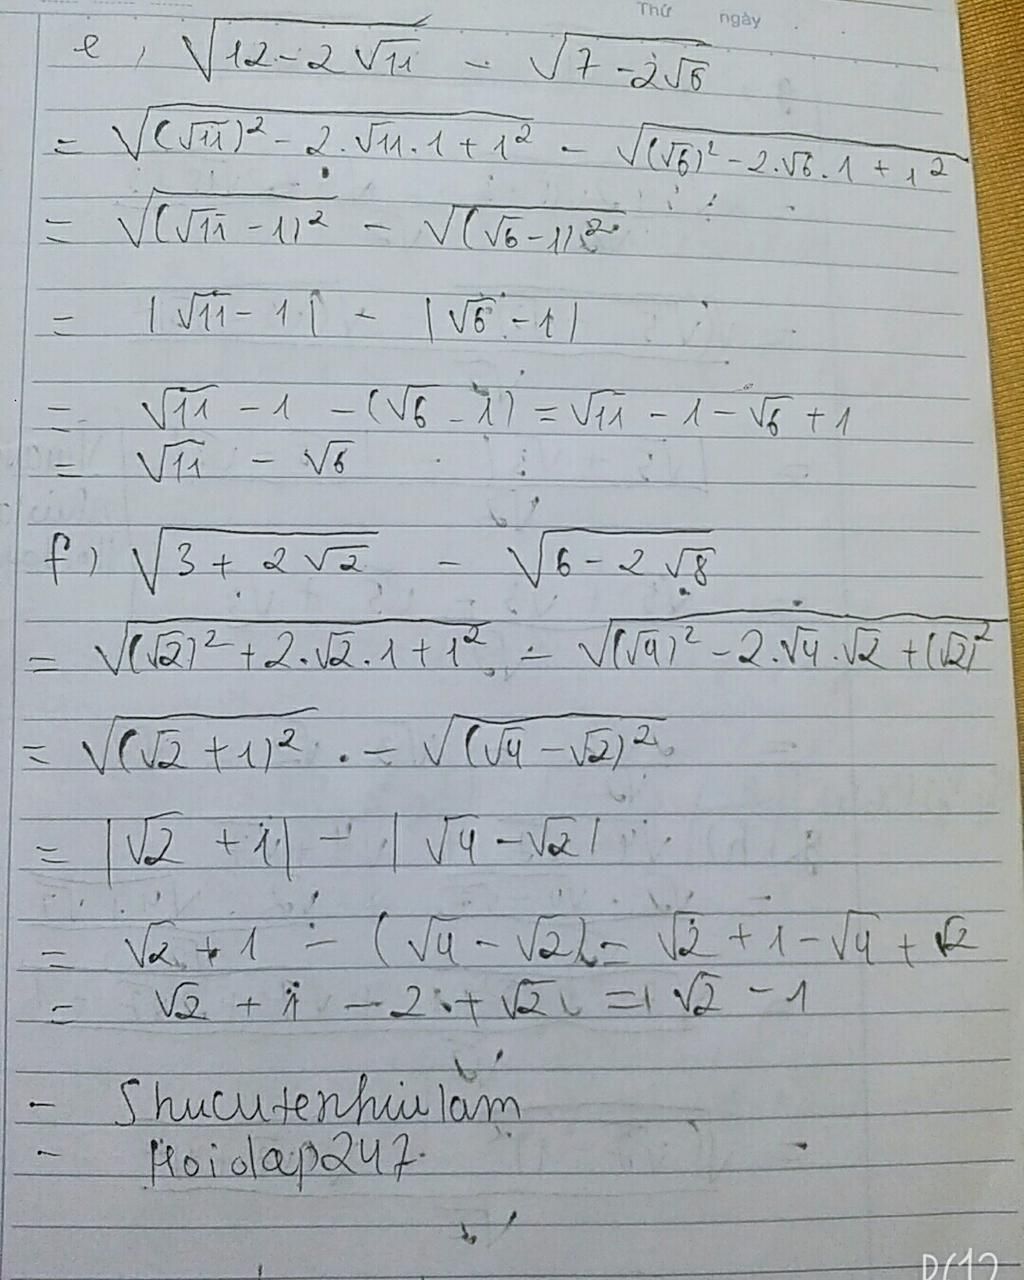 Thứ ngày
e, √(12 - 2√11) - √(7 - 2√6)
= √((√11)² - 2.√11.1 + 1²) - √((√6)² - 2.√6.1 + 1²)
= √((√11 - 1)²) - √((√6 - 1)²)
= |√11 - 1| - |√6 - 1|
= √11 - 1 - (√6 - 1) = √11 - 1 - √6 + 1
= √11 - √6
f) √(3 + 2√2) - √(6 - 2√8)
= √((√2)² + 2.√2.1 + 1²) - √((√4)² - 2.√4.√2 + (√2)²)
= √((√2 + 1)²) - √((√4 - √2)²)
= |√2 + 1| - |√4 - √2|
= √2 + 1 - (√4 - √2) = √2 + 1 - √4 + √2
= √2 + 1 - 2 + √2 = √2 - 1
- Shucutenhiulam
- Hoidap247.